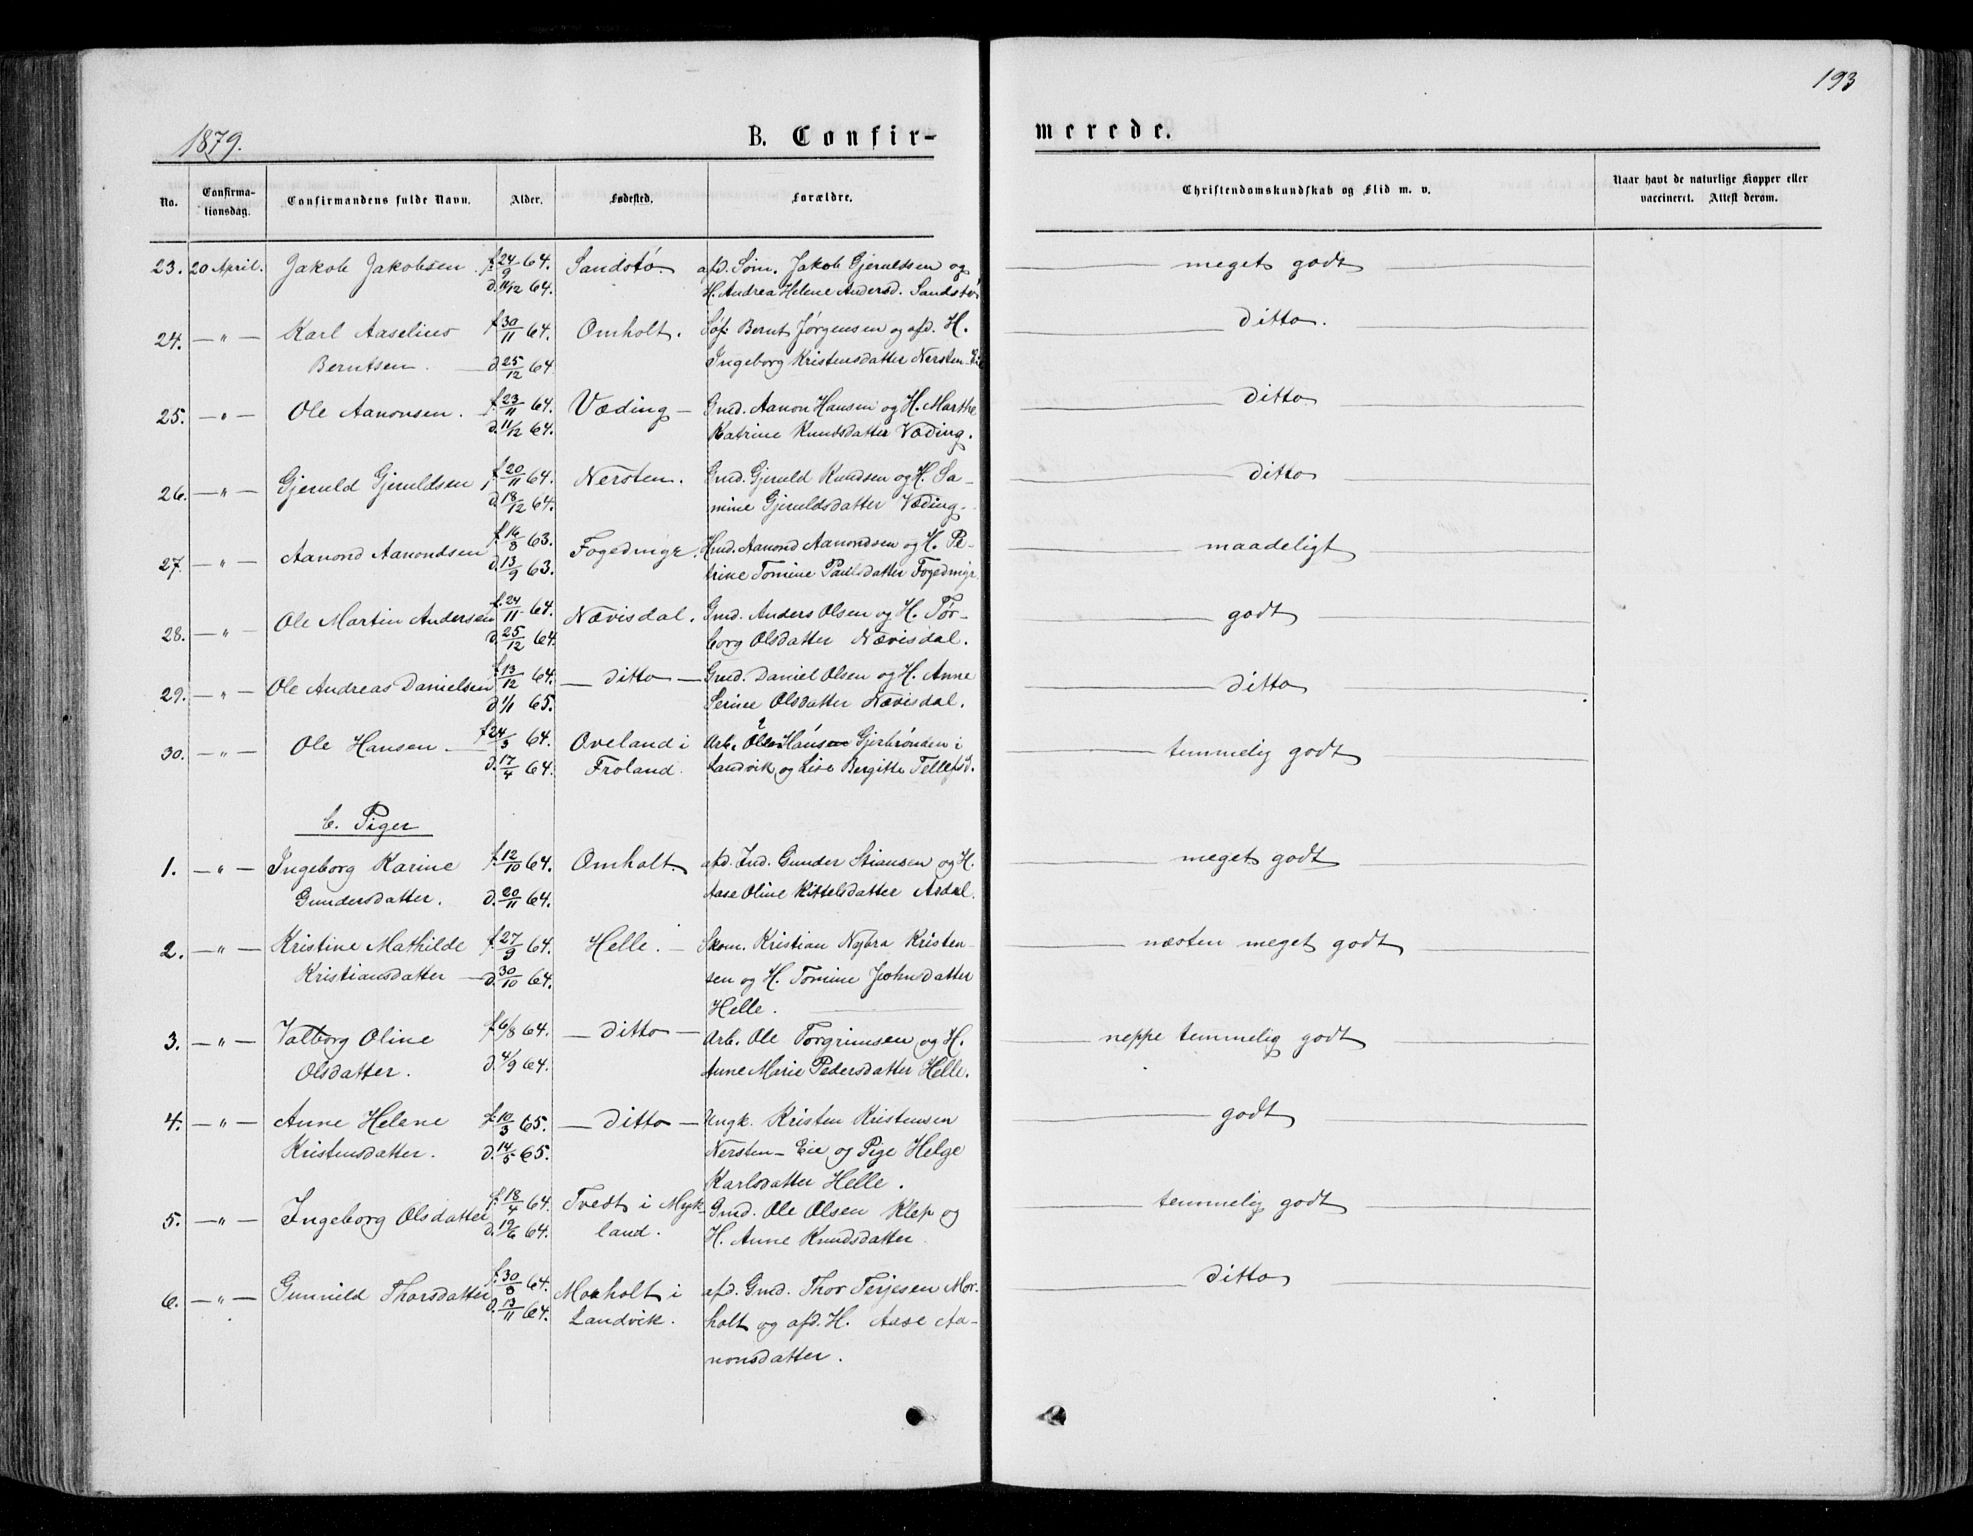 193
1879.
B. Confir-
merede.
No.
Confirma-
tionsdag.
Confirmandens fulde Navn.
Alder.
Fødested.
Forældre.
Christendomskundskab og Flid m. v.
Naar havt de naturlige Kopper eller
vaccineret. Attest derom.
23. 20 April. Jakob Jakobsen f. 24/9 64. Sandstø afd. Søm. Jakob Gjeruldsen og meget godt
d. 11/12 64. H. Andrea Helene Andersd. Sandstø
24. — " — Karl Aaselius f. 30/11 64. Omholt. Bernt Jørgensen og afd. H. ditto.
Berntsen. d. 25/12 64. Ingeborg Kristensdatter Nersten-Eie
25. — " — Ole Aanonsen. f. 23/11 64. Væding — Gmd. Aanon Hansen og H. Marthe ditto
d. 11/12 64. Katrine Knudsdatter Væding.
26. — " — Gjeruld Gjeruldsen f. 20/11 64. Nersten. Gmd. Gjeruld Knudsen og H. Sa- ditto
d. 18/12 64. mine Gjeruldsdatter Væding.
27. — " — Aanond Aanondsen f. 16/8 63. Fogedmyr. Hmd. Aanond Aanondsen og H. Pe- maadeligt
d. 13/9 63. trine Tomine Paulsdatter Fogedmyr.
28. — " — Ole Martin Andersen f. 24/11 64. Nævisdal. Gmd. Anders Olsen og H. Tor- godt
d. 25/12 64. borg Olsdatter Nævisdal.
29. — " — Ole Andreas Danielsen f. 13/12 64. — ditto — Gmd. Daniel Olsen og H. Anne ditto
d. 1/1 65. Serine Olsdatter Nævisdal.
30. — " — Ole Hansen. f. 24/3 64. Oveland i Arb. Ole Hansen Gjerbrønden i temmelig godt
d. 17/4 64. Froland. Landvik og Lise Bergitte Tellefsd.
b. Piger
1. — " — Ingeborg Karine f. 12/10 64. Omholt. afd. Ind. Gunder Stiansen og H. meget godt
Gundersdatter. d. 20/11 64. Aase Oline Kittelsdatter Asdal.
2. — " — Kristine Mathilde f. 27/9 64. Helle. — Skom. Kristian Nybra Kristen- næsten meget godt
Kristiansdatter d. 30/10 64. sen og H. Tomine Johnsdatter
Helle.
3. — " — Valborg Oline f. 6/8 64. — ditto — Arb. Ole Torgrimsen og H. neppe temmelig godt
Olsdatter. d. 4/9 64. Anne Marie Pedersdatter Helle.
4. — " — Anne Helene f. 10/3 65. — ditto — Ungk. Kristen Kristensen godt
Kristensdatter. d. 14/5 65. Nersten-Eie og Pige Helge
Karlsdatter Helle.
5. — " — Ingeborg Olsdatter f. 18/4 64. Tvedt i Myk- Gmd. Ole Olsen Klep og temmelig godt
d. 19/6 64. land. H. Anne Knudsdatter
6. — " — Gunnild Thorsdatter f. 30/8 64. Morholt i afd. Gmd. Thor Terjesen Mor- ditto
d. 13/11 64. Landvik. holt og afd. H. Aase Aa-
nonsdatter.